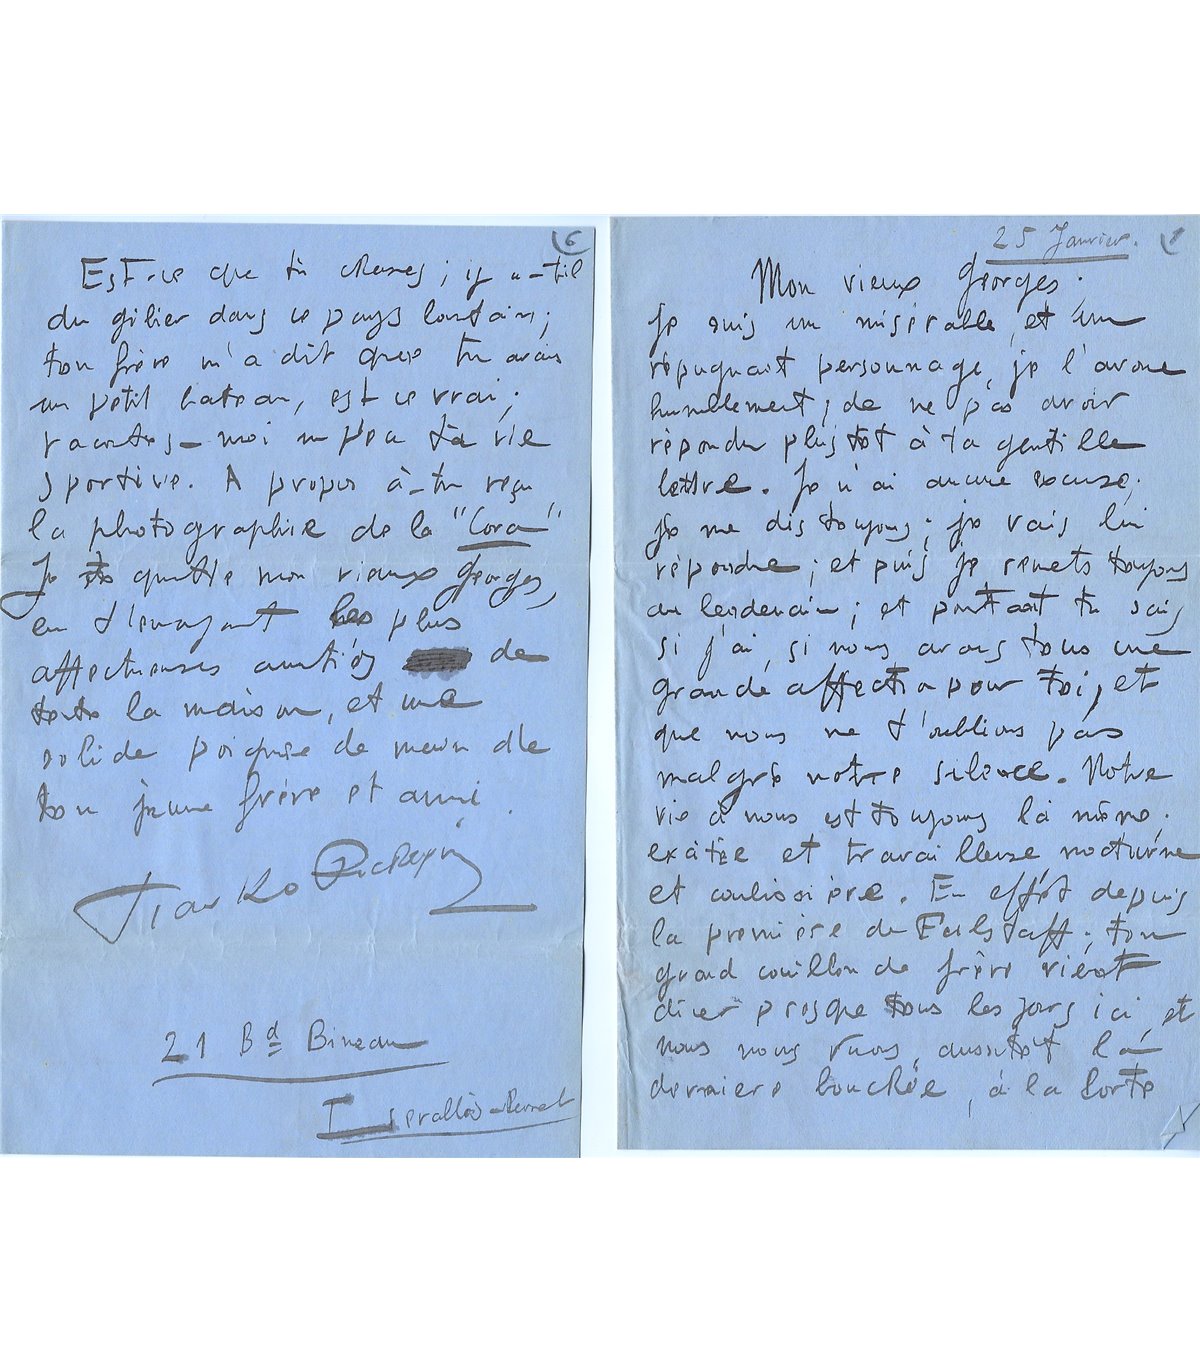 6
Est-ce que tu chasses ; y a-t-il
du gibier dans ce pays lointain ;
ton frère m'a dit que tu avais
un petit bateau, est ce vrai ;
racontes-moi un peu ta vie
sportive. A propos à-tu reçu
la photographie de la "Cora"
Je quitte mon vieux Georges,
en t'envoyant les plus
affectueuses amitiés de
toute la maison, et une
solide poignée de main de
ton jeune frère et ami.
21 Bd Bineau
1
25 Janvier.
Mon vieux Georges.
Je suis un misérable, et un
répugnant personnage, je l'avoue
humblement ; de ne pas avoir
répondu plus tôt à ta gentille
lettre. Je n'ai aucune excuse ;
je me dis toujours ; je vais lui
répondre ; et puis je remets toujours
au lendemain ; et pourtant tu sais
si j'ai, si nous avons tous une
grande affection pour toi, et
que nous ne t'oublions pas
malgré notre silence. Notre
vie à nous est toujours la même.
excitée et travailleuse nocturne
et coulissière. En effet depuis
la première de Falstaff ; ton
grand couillon de frère vient
diner presque tous les jours ici, et
nous nous aussitôt la
dernière bouchée, à la Porte